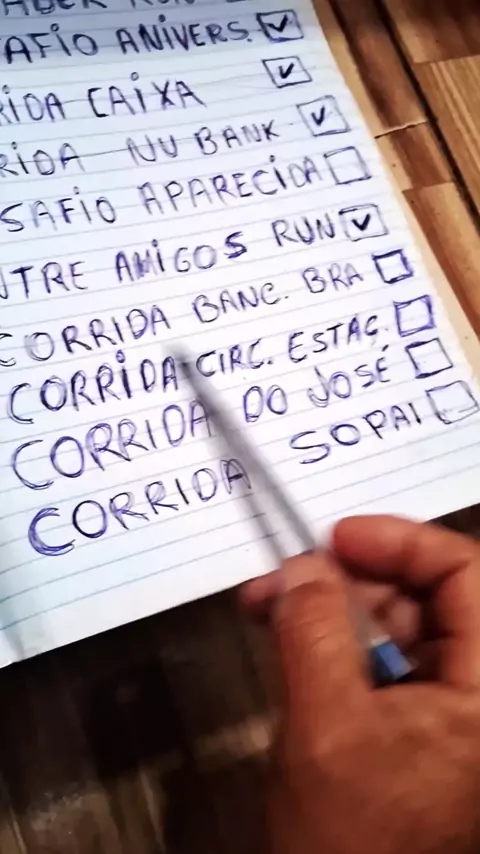 AFIO ANIVERS.
RIDA CAIXA
RIDA NU BANK
SAFIO APARECIDA
NTRE AMIGOS RUN
CORRIDA BANC. BRA
CORRIDA CIRC. ESTAÇ.
CORRIDA DO JOSÉ
CORRIDA SOPAI